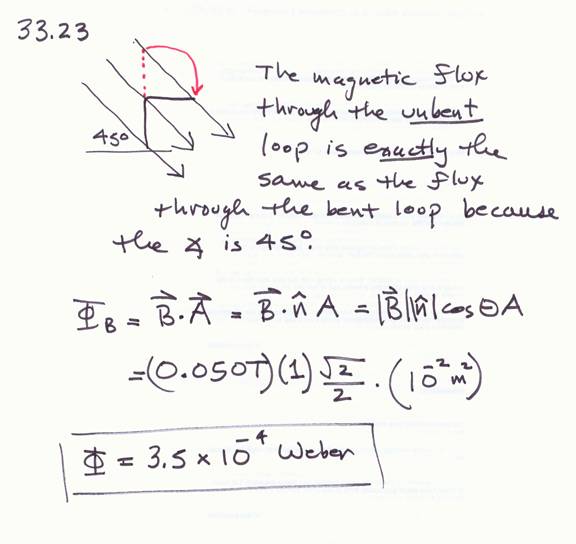 33.23
45°
The magnetic flux
through the unbent
loop is exactly the
same as the flux
through the bent loop because
the ∡ is 45°.
Φ_B = B⃗·A⃗ = B⃗·n̂ A = |B⃗||n̂|cosθA
=(0.050T)(1) √2/2 · (10⁻² m²)
Φ = 3.5 × 10⁻⁴ Weber